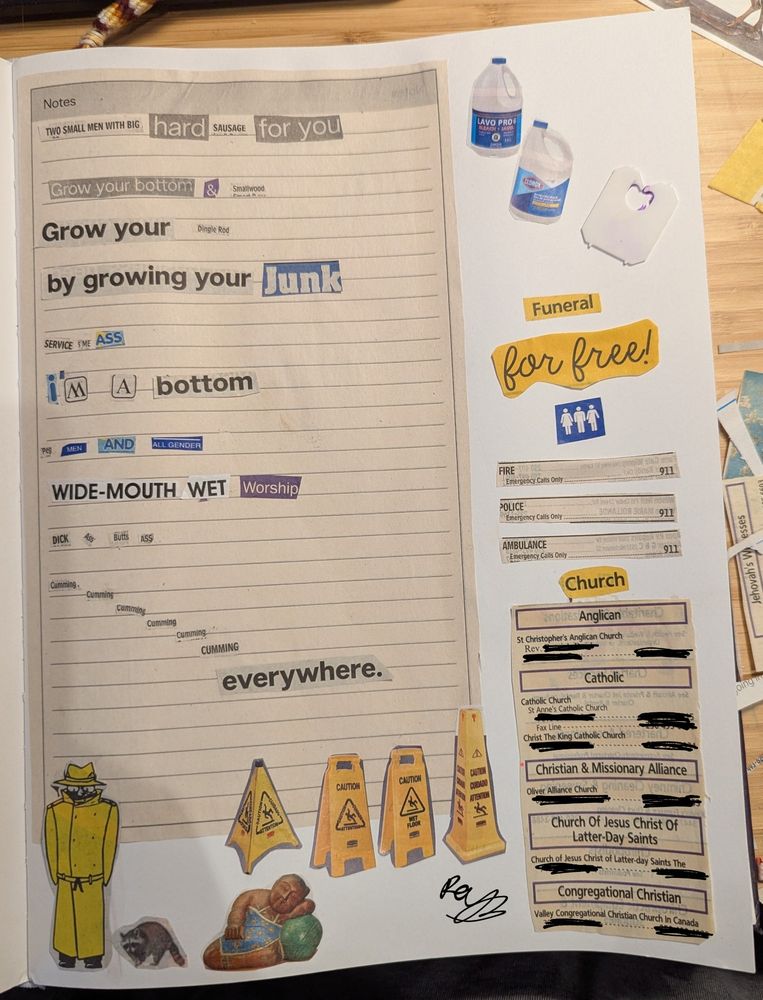 Notes
TWO SMALL MEN WITH BIG hard SAUSAGE for you
Grow your bottom & Smallwood
Grow your Dingle Rod
by growing your Junk
SERVICE ME ASS
i'M A bottom
MEN AND ALL GENDER
WIDE-MOUTH WET Worship
DICK Butts ASS
Cumming
Cumming
Cumming
Cumming
Cumming
CUMMING
everywhere.
LAVO PRO 6
CLOROX
Funeral
for free!
FIRE
Emergency Calls Only 911
POLICE
Emergency Calls Only 911
AMBULANCE
Emergency Calls Only 911
Church
Anglican
St Christopher's Anglican Church
Rev.
Catholic
Catholic Church
St Anne's Catholic Church
Fax Line
Christ The King Catholic Church
Christian & Missionary Alliance
Oliver Alliance Church
Church Of Jesus Christ Of
Latter-Day Saints
Church of Jesus Christ of Latter-day Saints The
Congregational Christian
Valley Congregational Christian Church In Canada
CAUTION
CAUTION
WET FLOOR
CAUTION
CUIDADO
ATTENTION
Jehovah's Witnesses